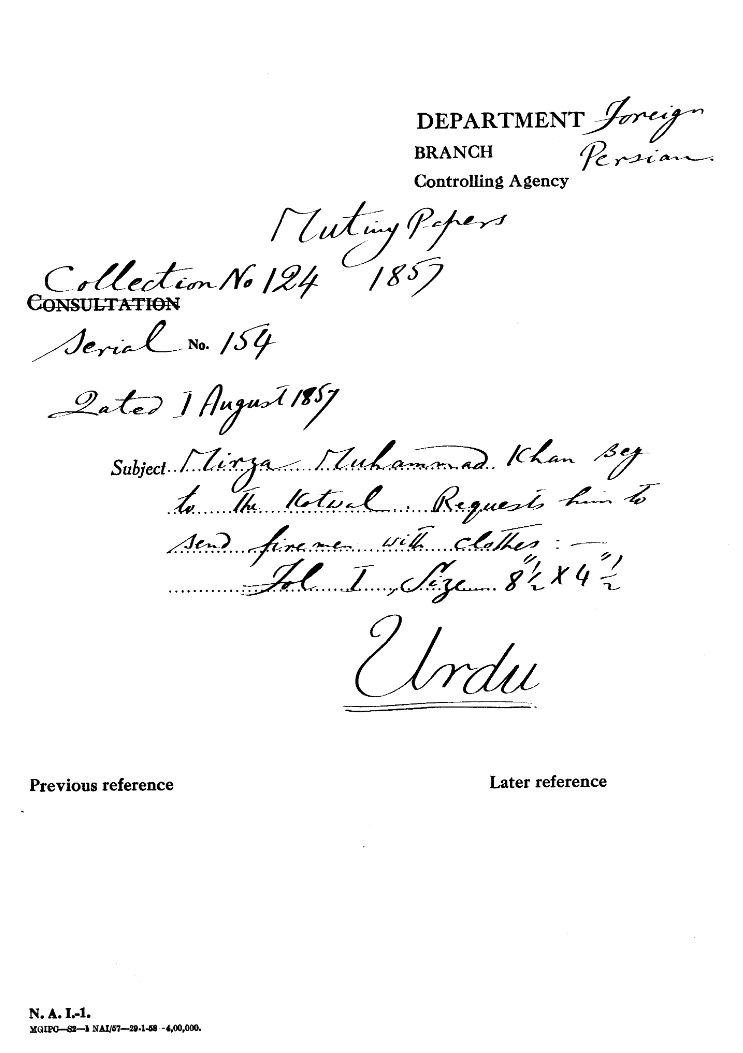 DEPARTMENT Foreign
BRANCH Persian.
Controlling Agency
Mutiny Papers
Collection No 124 1857
CONSULTATION
Serial No. 154
Dated 1 August 1857
Subject Mirza Muhammad Khan Beg
to the Kotwal. Requests him to
send firemen with clothes : —
Fol I, Size 8½" X 4½"
Urdu
Previous reference
Later reference
N. A. I.-1.
MGIPC—S2—1 NAI/57—29-1-58 -4,00,000.